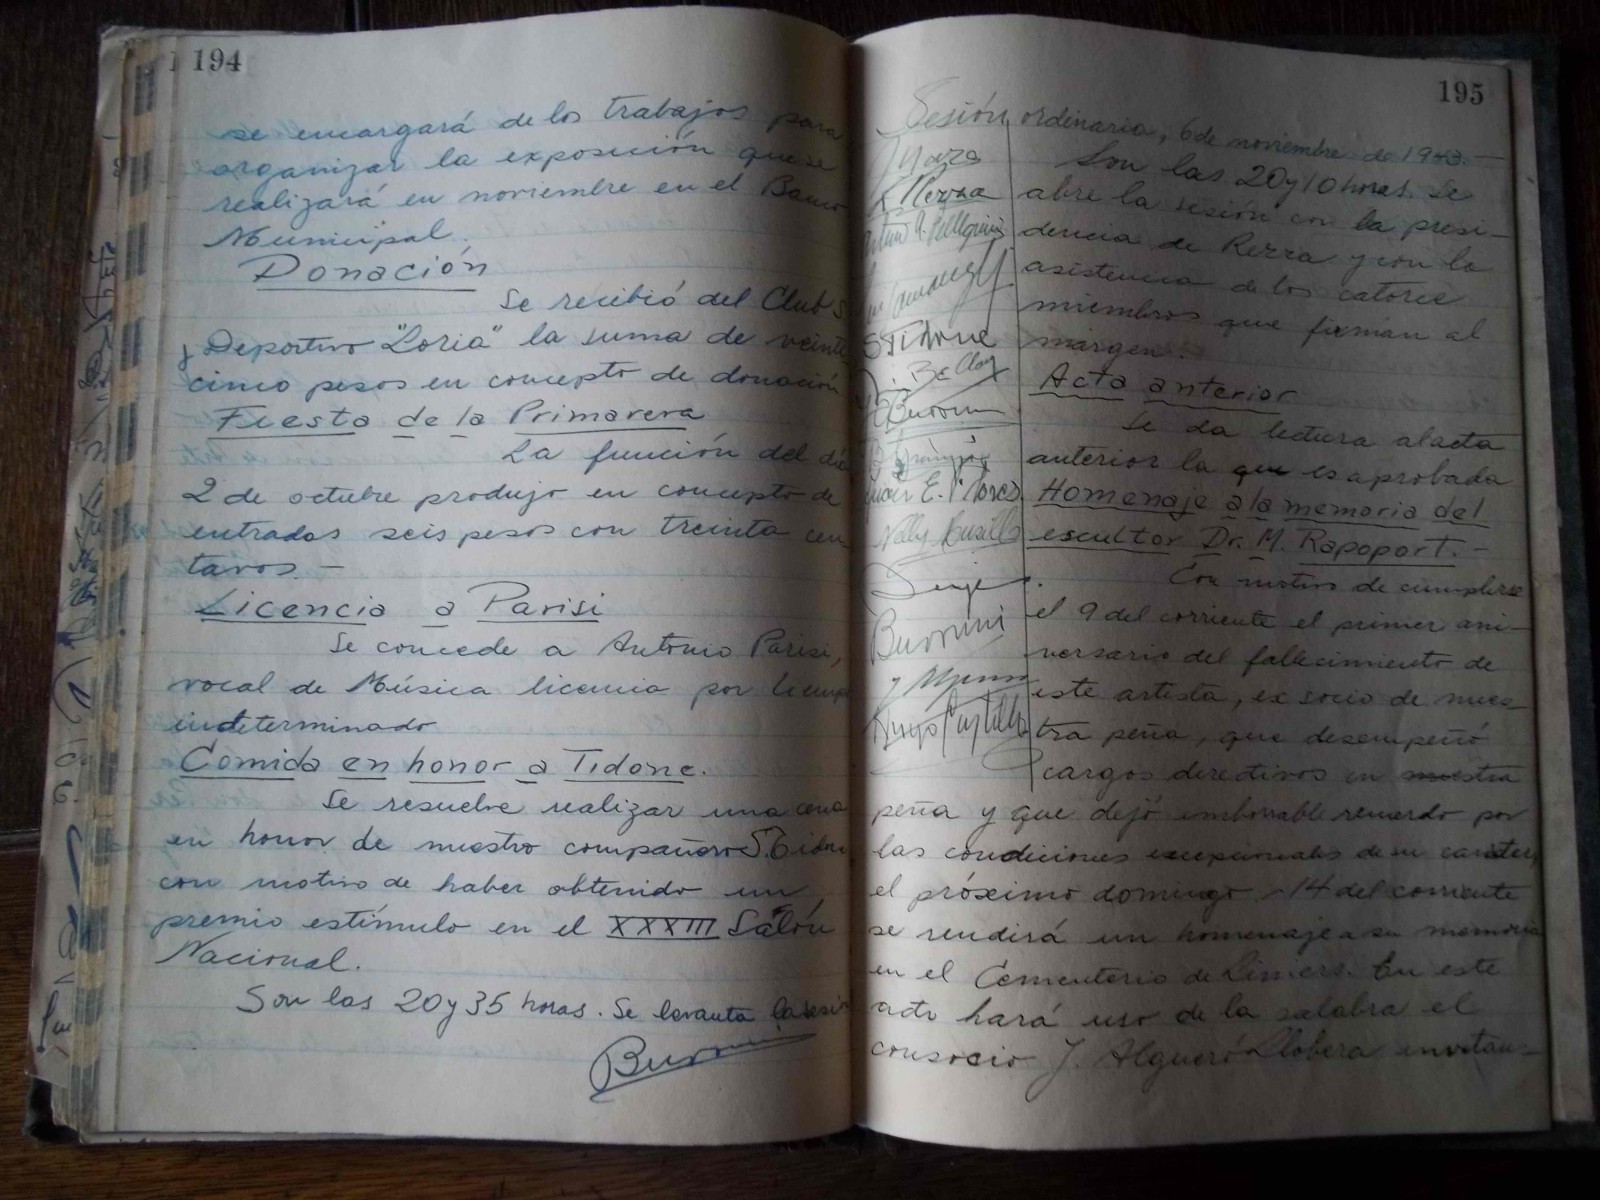 194
se encargará de los trabajos para
organizar la exposición que se
realizará en noviembre en el Banco
Municipal.
Donación
Se recibió del Club S.
y Deportivo "Loria" la suma de veinte
cinco pesos en concepto de donación
Fiesta de la Primavera
La función del día
2 de octubre produjo en concepto de
entradas seis pesos con treinta cen
tavos. —
Licencia a Parisi
Se concede a Antonio Parisi,
vocal de Música licencia por tiempo
indeterminado
Comida en honor a Tidone.
Se resuelve realizar una cena
en honor de nuestro compañero S. Tidone
con motivo de haber obtenido un
premio estímulo en el XXXIII Salón
Nacional.
Son las 20 y 35 horas. Se levanta la sesión
Burrini
195
Sesión ordinaria, 6 de noviembre de 1943. —
Son las 20 y 10 horas. Se
abre la sesión con la presi-
dencia de Rezza y con la
asistencia de los catorce
miembros que firman al
márgen.
Rezza
Pellegrini
STidone
Burrini
E. Flores
Nelly Busillo
Burrini
Hugo Castillo
Acta anterior
Se da lectura al acta
anterior la que es aprobada
Homenaje a la memoria del
escultor Dr. M. Rapoport. —
Con motivo de cumplirse
el 9 del corriente el primer ani-
versario del fallecimiento de
este artista, ex socio de nues-
tra peña, que desempeñó
cargos directivos en nuestra
peña y que dejó imborrable recuerdo por
las condiciones excepcionales de su carácter,
el próximo domingo 14 del corriente
se rendirá un homenaje a su memoria
en el Cementerio de Liniers. En este
acto hará uso de la palabra el
consocio J. Algueró Llobera invitan-